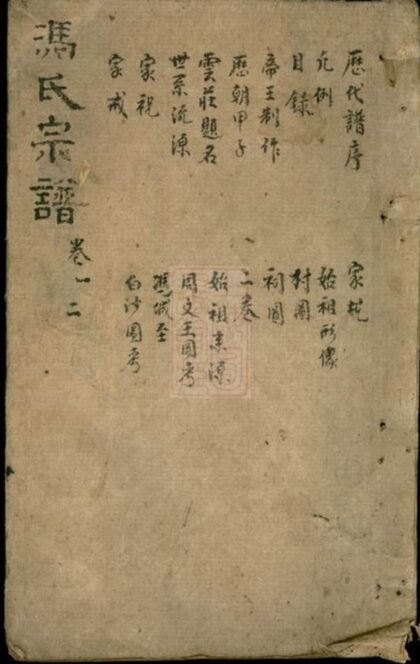 馮氏宗譜
卷一二
歷代譜序
凡例
目錄
帝王制作
歷朝甲子
雲莊題名
世系流源
家祝
家戒
家規
始祖形像
村圖
祠圖
二卷
始祖來源
周文王圖考
馮城至
白沙圖考